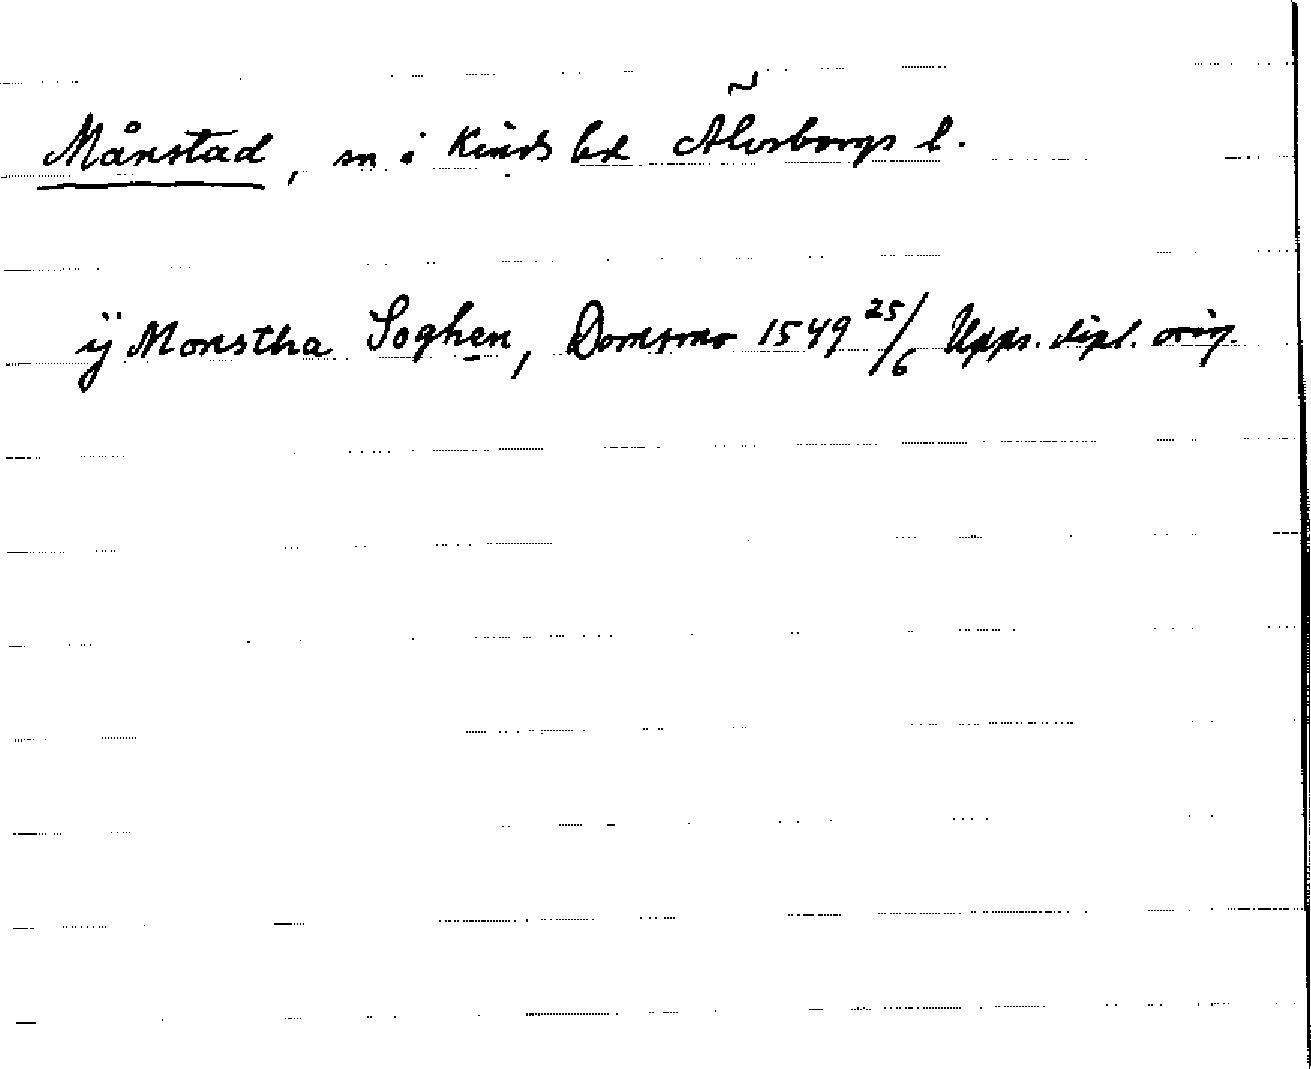 Månstad, sn i Kinds hd Älvsborgs l.
ÿ Monstha Soghen, 1549 25/6 Upps. dipl. orig.